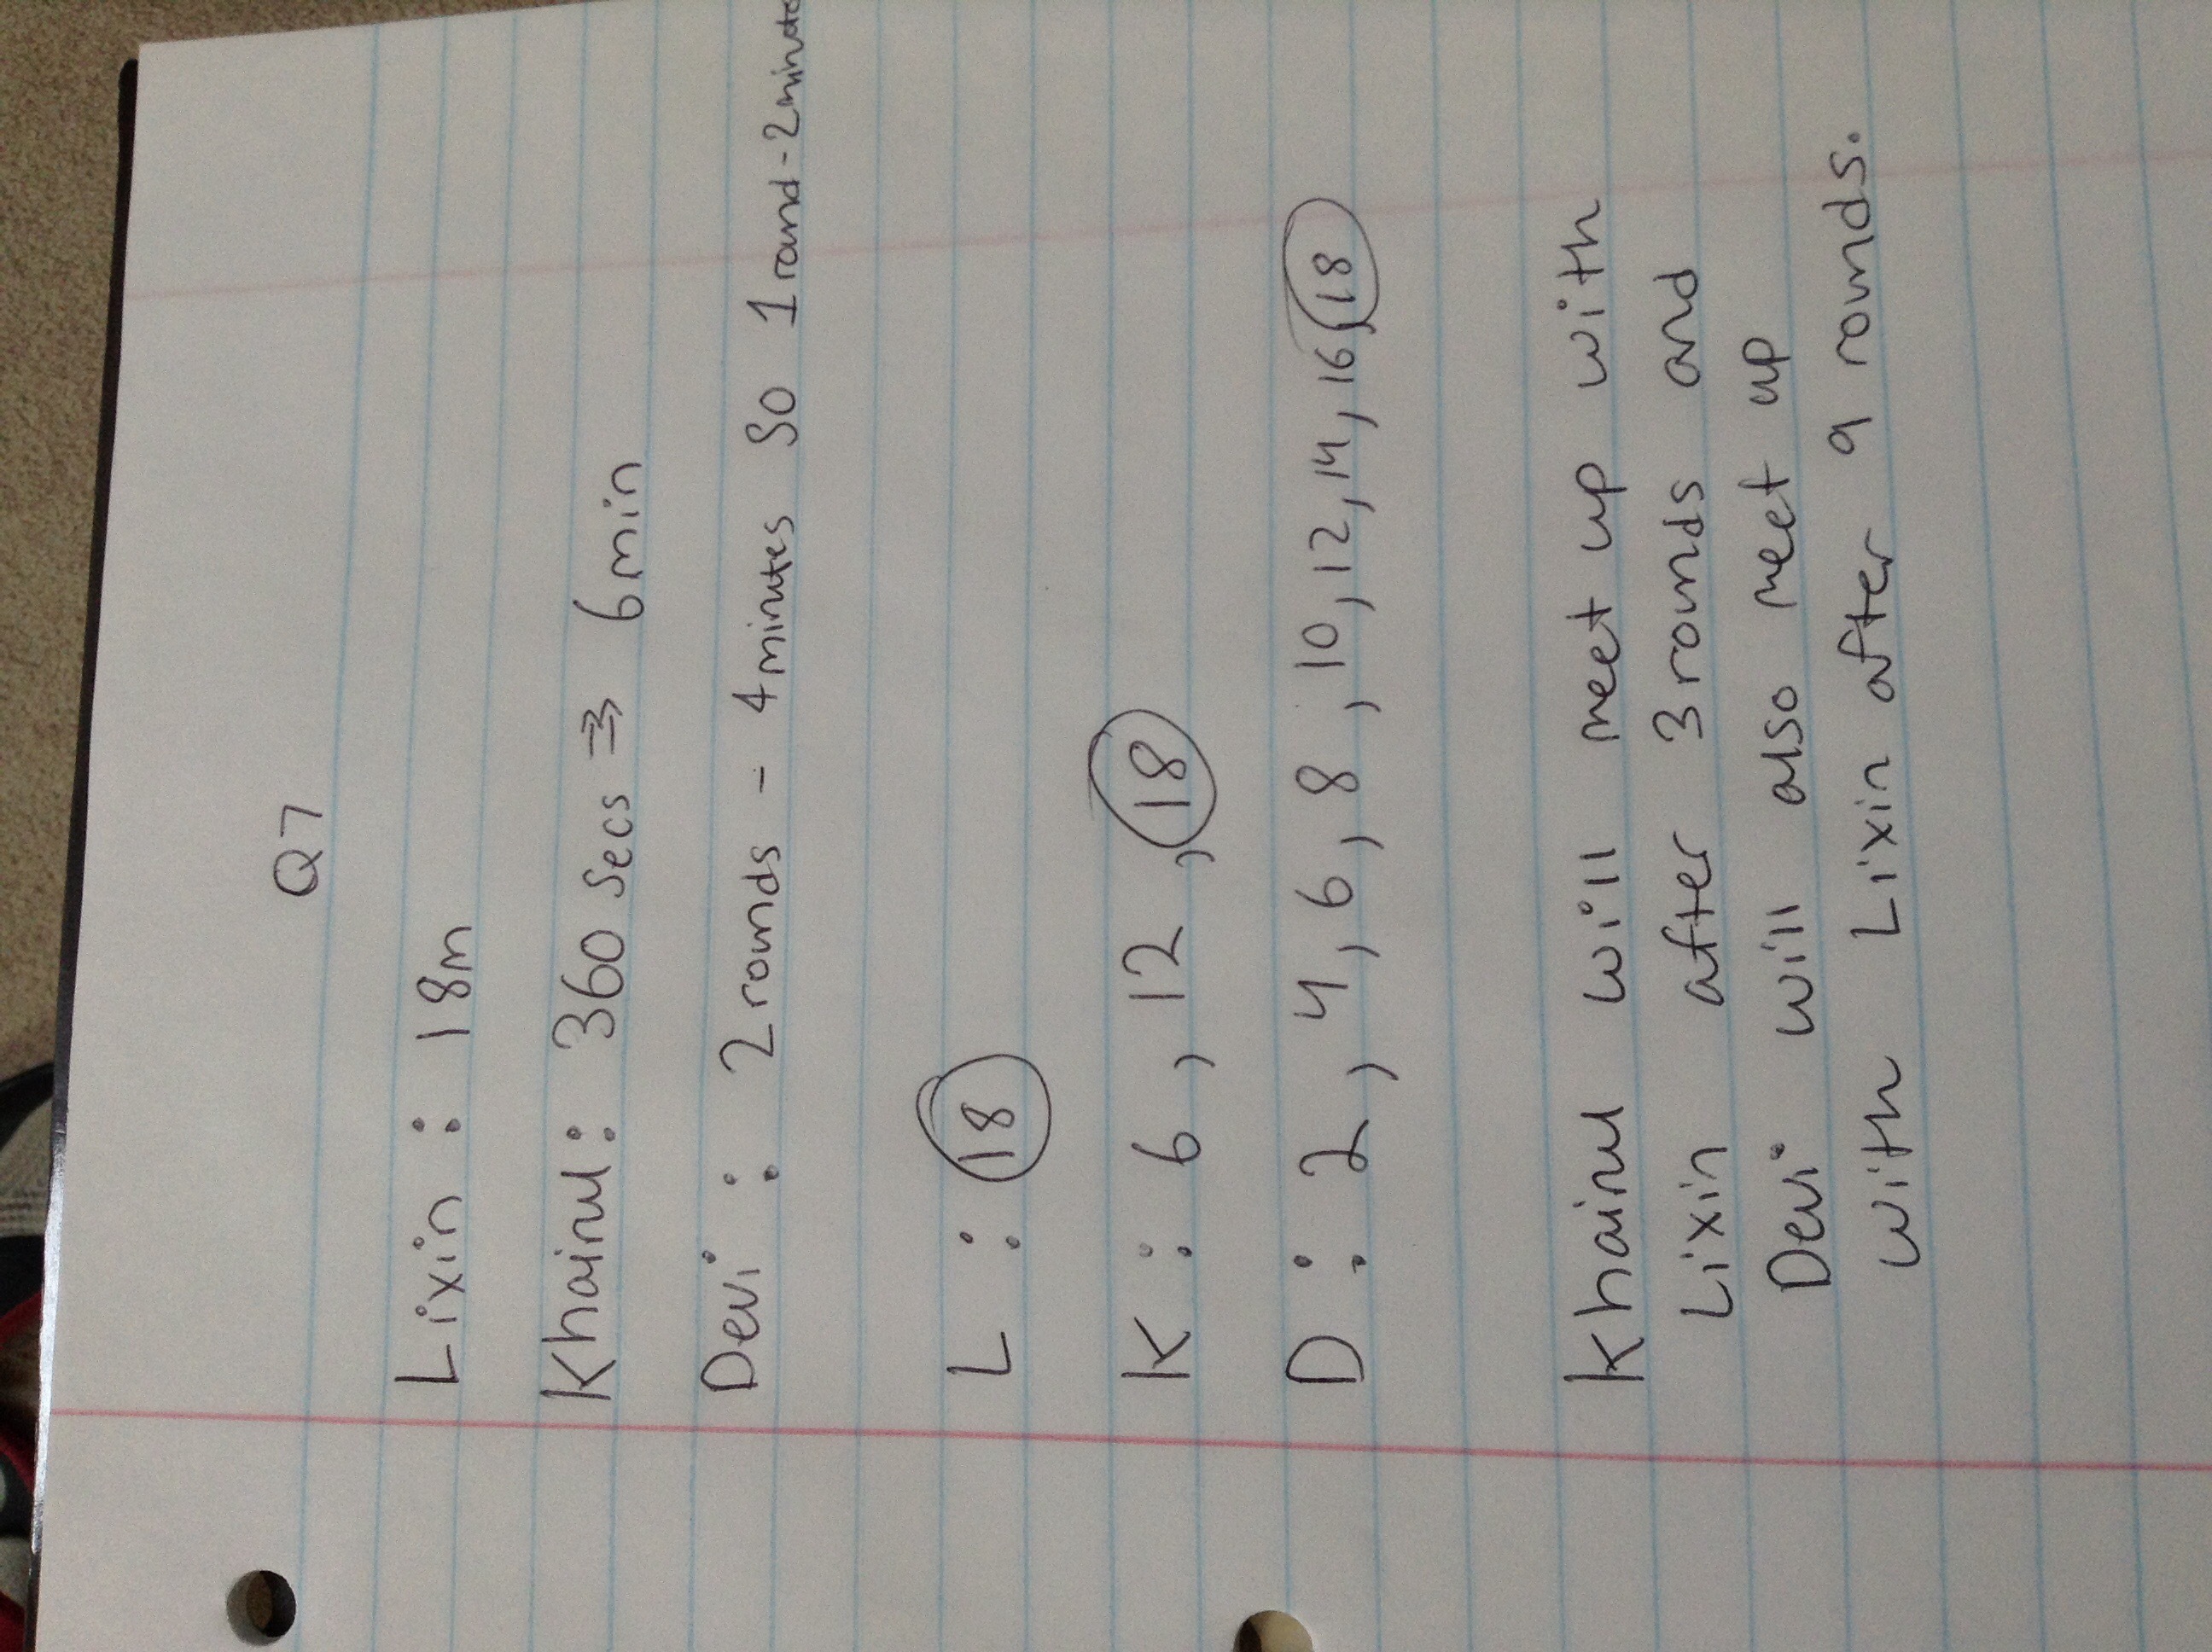 Q7
Lixin : 18m
Khairul : 360 secs ⇒ 6min
Devi : 2 rounds - 4 minutes So 1 round - 2 minutes
L : 18
K : 6, 12, 18
D : 2, 4, 6, 8, 10, 12, 14, 16, 18
Khairul will meet up with
Lixin after 3 rounds and
Devi will also meet up
with Lixin after 9 rounds.